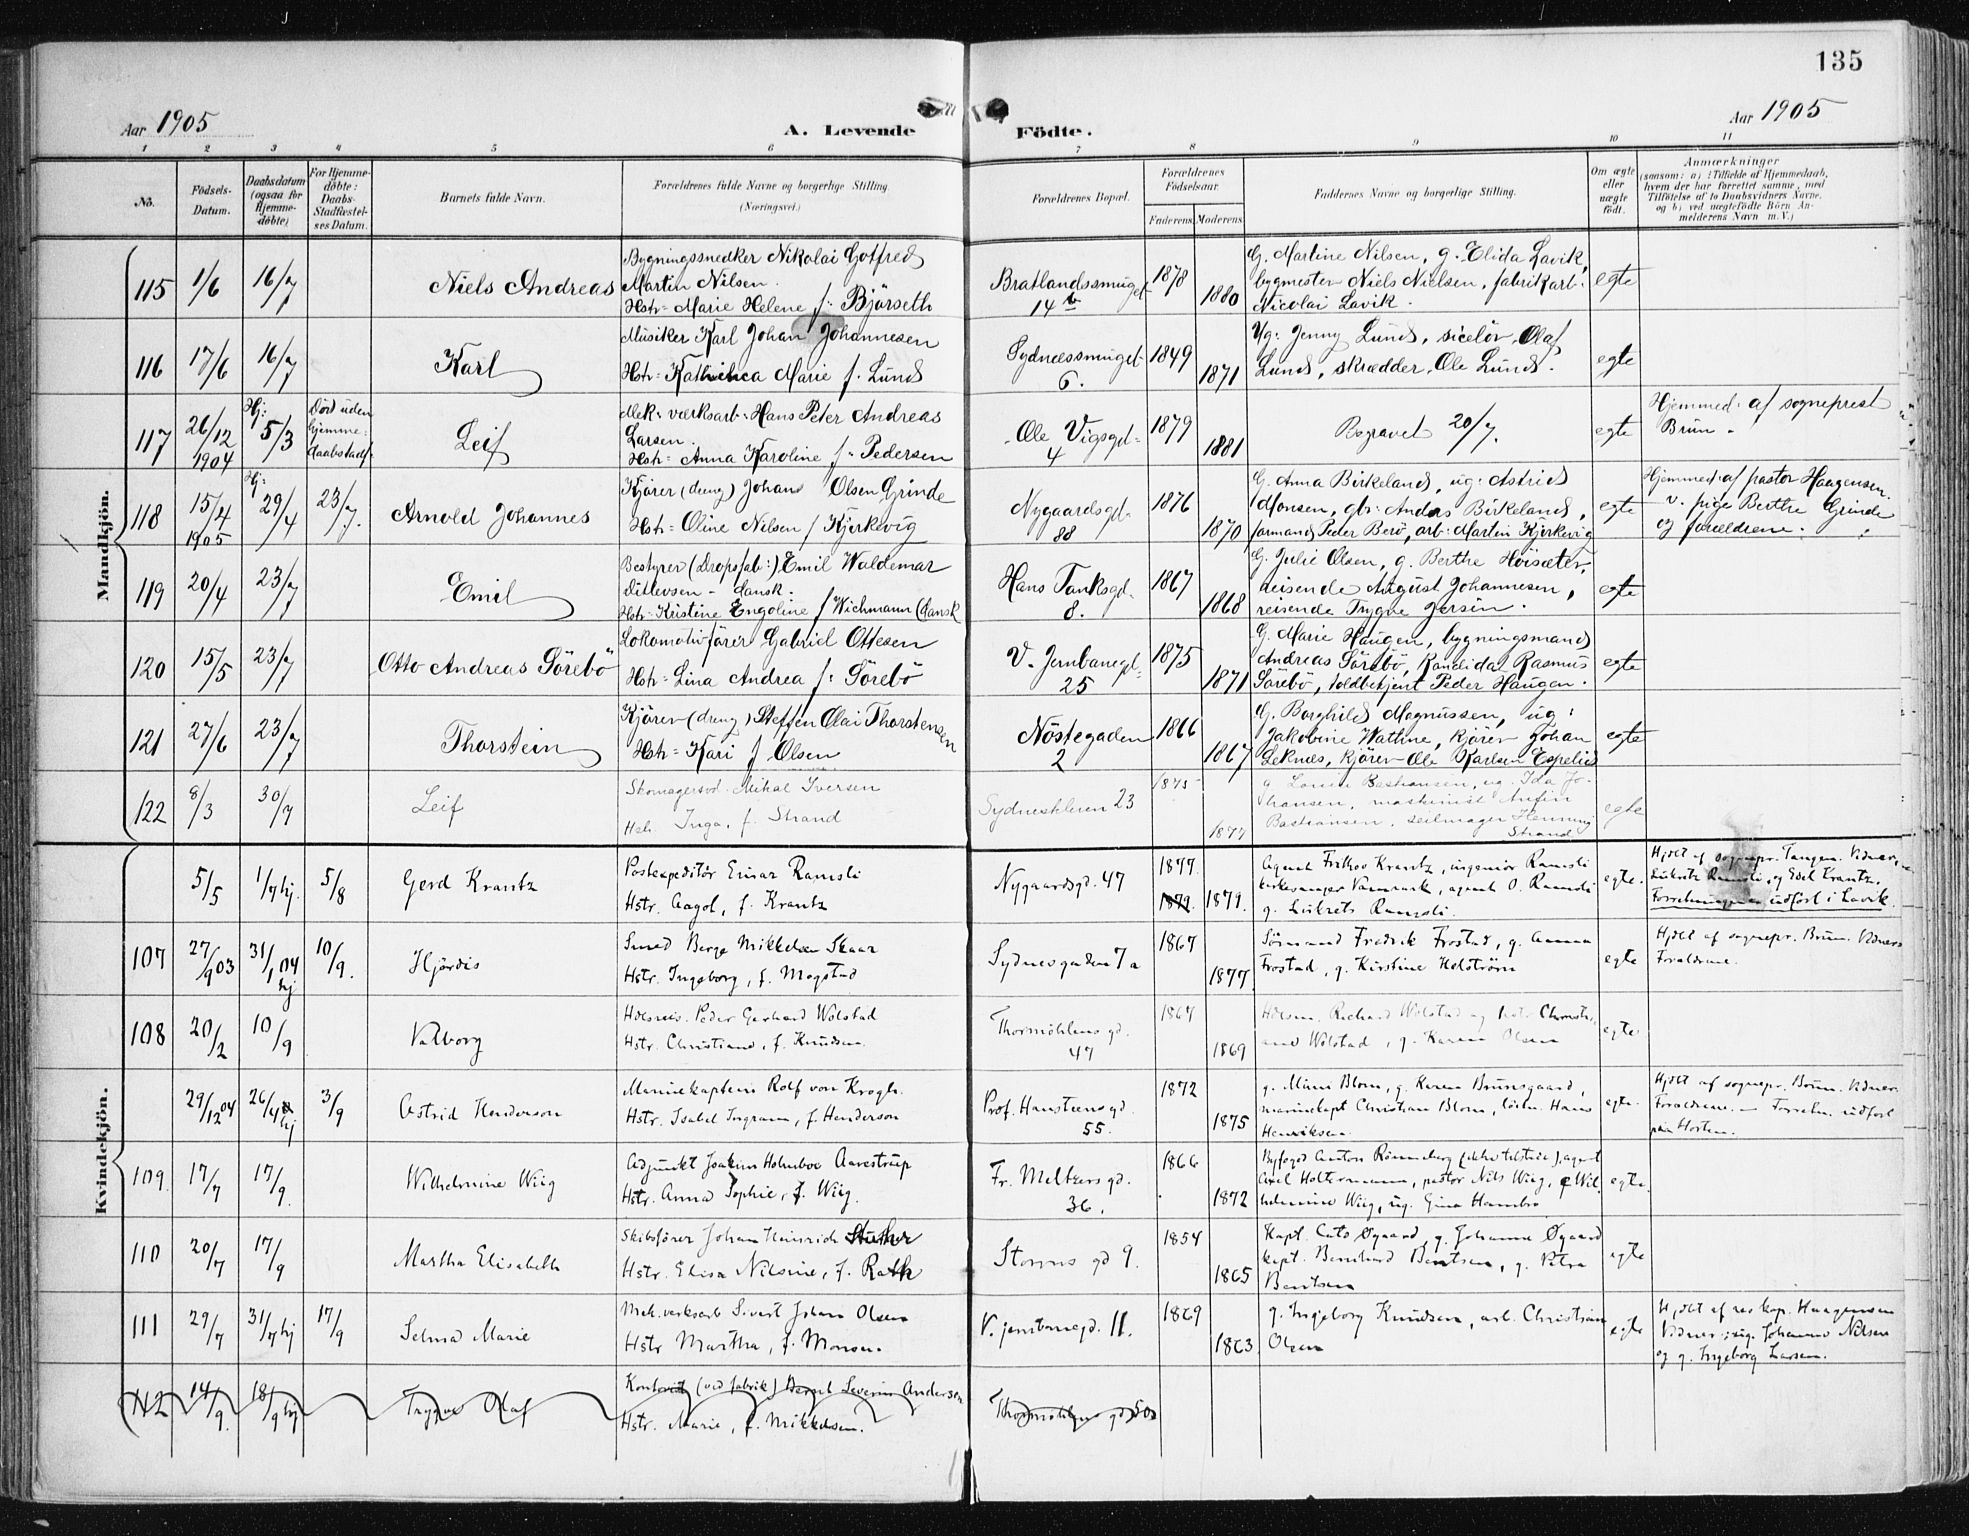 135
Aar 1905
A. Levende
Födte.
Aar 1905
1 2 3 4 5 6 7 8 9 10 11
No.
Födsels-
Datum.
Daabsdatum
(ogsaa for
Hjemme-
døbte)
For Hjemme-
døbte:
Daabs-
Stadfæstel-
ses Datum.
Barnets fulde Navn.
Forældrenes fulde Navne og borgerlige Stilling.
(Næringsvei.)
Forældrenes Bopæl.
Forældrenes
Födselsaar.
Faderens Moderens
Faddernes Navne og borgerlige Stilling.
Om ægte
eller
uægte
født.
Anmærkninger
(saasom: a) i Tilfælde af Hjemmedaab,
hvem der har forrettet samme, med
Tilføielse af to Daabsvidners Navne,
og b) ved uægtefödte Börn An-
melderens Navn m. V.)
Mandkjön.
115 1/6 16/7 Niels Andreas
Bygningssnedker Nikolai Gotfred
Martin Nilsen.
Hstr: Marie Helene f: Björseth
Bratlandssmuget
14b
1878 1880
G. Martine Nilsen, g. Elida Lavik,
bygmester Niels Nielsen, fabrikarb:
Nicolai Lavik.
egte
116 17/6 16/7 Karl
Musiker Karl Johan Johannesen
Hstr: Kathinca Marie f. Lund
Sydnæssmuget
6.
1849 1871
Ug: Jenny Lund, Olaf
Lund, skrædder Ole Lund.
egte
117 26/12 1904 Hj: 5/3 Död uden
hjemme-
daabstadf:
Leif
Mek: værksarb: Hans Peter Andreas
Larsen.
Hstr: Anna Karoline f: Pedersen
Ole Vigsgd:
4
1879 1881
Begravet 20/7.
egte
Hjemmed: af sogneprest
Brun.
118 15/4 1905 Hj: 29/4 23/7. Arnold Johannes
Kjörer (dreng) Johan Olsen Grinde
Hstr: Oline Nilsen f Kjerkevig
Nygaardsgd.
88
1876 1870
G. Anna Birkeland, ug: Astrid
Monsen, gbr: Anders Birkeland,
formand Peder Berö, arb: Martin Kjerkevig
egte
Hjemmed: af pastor Haagensen.
v. pige Berthe Grinde
og forældrene.
119 20/4 23/7 Emil
Bestyrer (Dropsfab:) Emil Waldemar
Ditlevsen - dansk.
Hstr: Kristine Engoline f Wichmann (dansk
Hans Tanksgd.
8.
1867 1868
G. Julie Olsen, g. Berthe Höisæter,
reisende August Johannesen,
reisende Trygve Jersin.
egte
120 15/5 23/7 Otto Andreas Sörebö
Lokomotivförer Gabriel Ottesen
Hstr: Lina Andrea f: Sörebö
V. Jernbanegd:
25
1875 1871
G. Marie Haugen, bygningsmand
Andreas Sörebö, Kandidat Rasmus
Sörebö, toldbetjent Peder Haugen.
egte
121 27/6 23/7 Thorstein
Kjörer (dreng) Steffen Olai Thorstensen
Hstr: Kari f Olsen
Nöstegaden
2
1866 1867
G. Borghild Magnussen, ug:
Jakobine Wathne, kjörer Johan
Leknes, kjörer Ole Karlsen Espelid
egte
122 8/3 30/7 Leif
Skomagersvd. Mikal Iversen
Hstr. Inga, f. Strand
Sydneskleven 23
1875 1877
g. Lovise Bastiansen, ug. Ida Jo-
hansen, maskinist Anfin
Bastiansen, seilmager Henning
Strand
egte
Kvindekjön.
5/5 1/7 hj. 5/8 Gerd Krantz
Postexpeditör Einar Ramsli
Hstr. Aagot, f. Krantz
Nygaardsgd. 47
1877 1879. 1879.
Agent Frithov Krantz, ingeniör Ramsli
kirkesanger, agent O. Ramsli
g. Ramsli.
egte.
Hjdbt af sognepr. Tangen. Vidner:
Ramsli, og Edel Krantz.
Forretningen udfört i Lavik.
107 27/9 03 31/1 04 hj 10/9. Hjördis
Smed Berge Mikkelsen Skaar
Hstr. Ingeborg, f. Mogstad
Sydnesgaden 7a
1867 1877
Sömand Fredrik Frostad, g. Anna
Frostad, g. Kirstine Holström
egte
Hjdbt af sognepr. Brun. Vidner:
Forældrene.
108 20/2 10/9 Valborg
Peder Gerhard Wolstad
Hstr. Christiane, f. Knudsen.
Thormöhlens gd.
47
1867 1869
Richard Wolstad og
Wolstad, g. Karen Olsen
egte
29/12 04 26/4 hj 3/9 Astrid Henderson
Marinekaptein Rolf von Krogh.
Hstr. Isabel Ingram, f. Henderson
Prof. Hansteens gd.
55.
1872 1875
g. Mimi Blom, g. Karen Brunsgaard,
marinekapt Christian Blom, Hans
Henriksen.
egte.
Hjdbt af sognepr. Brun. Vidner:
Forældrene. - Forretn. udfört
paa Horten.
109. 17/7 17/9. Wilhelmine Wiig
Adjunkt Joakim Holmboe Aarestrup
Hstr. Anna Sophie, f. Wiig.
Fr. Meltzers gd.
36.
1866 1872
Byfoged Anton Rönneberg, agent
Axel Holtermann, pastor Nils Wiig, g Wil-
helmine Wiig, ug. Gina Hambro
egte.
110 20/7 17/9 Martha Elisabeth
Skibsförer Johan Heinrich
Hstr. Elisa Nilsine, f. Rath
Storms gd 9.
1854 1865
Kapt. Cato Øgaard, g. Johanne Øgaard
kapt. Bernhard Berntsen, g. Petra
Berntsen
egte
111 29/7 31/7 hj 17/9 Selma Marie
Mek. verksarb Sivert Johan Olsen
Hstr Martha, f. Monsen.
V. jernbanegd. 11.
1869 1863.
g. Ingeborg Knudsen, arb. Christian
Olsen
egte
Hjdbt af res kap. Haagensen
Vidner: ug. Johanne Nilsen
og g. Ingeborg Larsen.
112 14/9. 18/9 hj Trygve Olaf
Kontorist (ved fabrik) Bernt Severin Andersen
Hstr. Marie, f. Mikkelsen.
Thormöhlens gd 50a